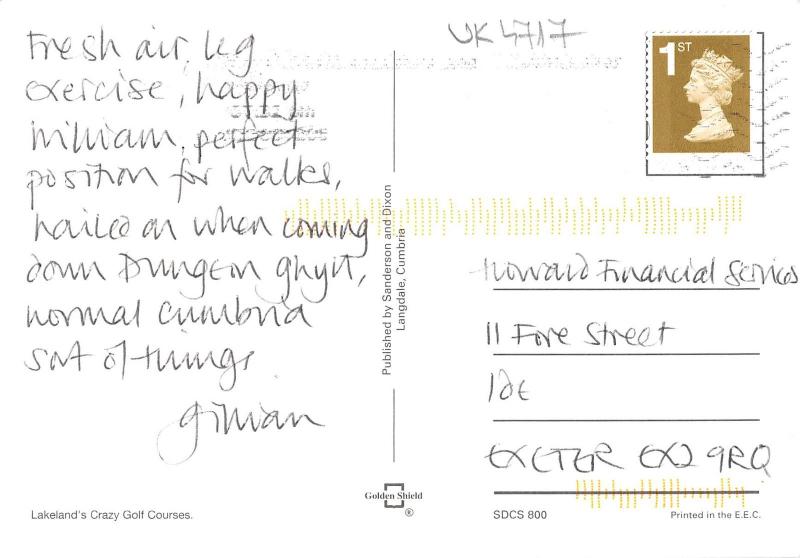 Fresh air, leg
exercise, happy
William, perfect
position for walks,
hailed on when coming
down Dungeon ghyll,
normal Cumbria
sort of things
Gillian
UK4717
1ST
Published by Sanderson and Dixon
Langdale, Cumbria
Howard Financial Services
11 Fore Street
IDE
EXETER EX2 9RQ
Golden Shield
®
Lakeland's Crazy Golf Courses.
SDCS 800
Printed in the E.E.C.